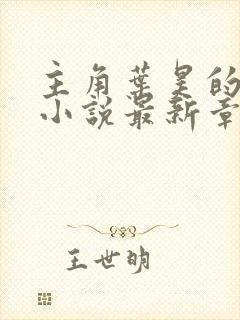 主角葉昊的
小說最新章
王世明